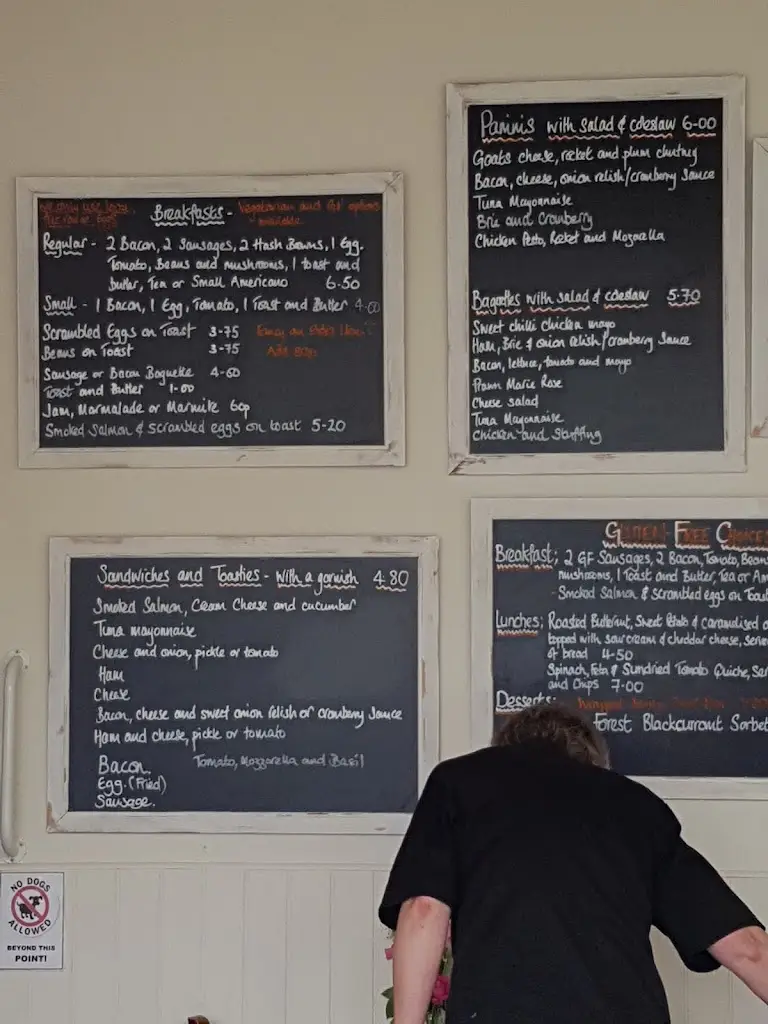 Breakfasts -
Vegetarian and options
available.
Regular - 2 Bacon, 2 Sausages, 2 Hash Browns, 1 Egg.
Tomato, Beans and mushrooms, 1 toast and
butter, Tea or Small Americano 6-50
Small - 1 Bacon, 1 Egg, Tomato, 1 Toast and Butter 4-00
Scrambled Eggs on Toast 3-75
Beans on Toast 3-75
Add 80p
Sausage or Bacon Baguette 4-60
Toast and Butter 1-00
Jam, Marmalade or Marmite 60p
Smoked Salmon & scrambled eggs on toast 5-20
Paninis with salad & coleslaw 6-00
Goats cheese, rocket and plum chutney
Bacon, cheese, onion relish/cranberry Sauce
Tuna Mayonnaise
Brie and Cranberry
Chicken Pesto, Rocket and Mozarella
Baguettes with salad & coleslaw 5-70
Sweet chilli chicken mayo
Ham, Brie & onion relish/cranberry Sauce
Bacon, lettuce, tomato and mayo
Prawn Marie Rose
Cheese salad
Tuna Mayonnaise
Chicken and Stuffing
Sandwiches and Toasties - with a garnish 4.80
Smoked Salmon, Cream Cheese and cucumber
Tuna mayonnaise
Cheese and onion, pickle or tomato
Ham
Cheese
Bacon, cheese and sweet onion relish or cranberry Sauce
Ham and cheese, pickle or tomato
Bacon. Tomato, Mozzarella and Basil
Egg. (Fried)
Sausage.
Gluten Free Choices
Breakfast; 2 GF Sausages, 2 Bacon, Tomato, Beans
mushrooms, 1 Toast and Butter, Tea or Am
- Smoked Salmon & scrambled eggs on Toast
Lunches; Roasted Butternut, Sweet Potato & caramelised
topped with sour cream & cheddar cheese,
of bread 4-50
Spinach, Feta & Sundried Tomato Quiche,
and Chips 7-00
Desserts;
Forest Blackcurrant Sorbet
NO DOGS
ALLOWED
BEYOND THIS
POINT!